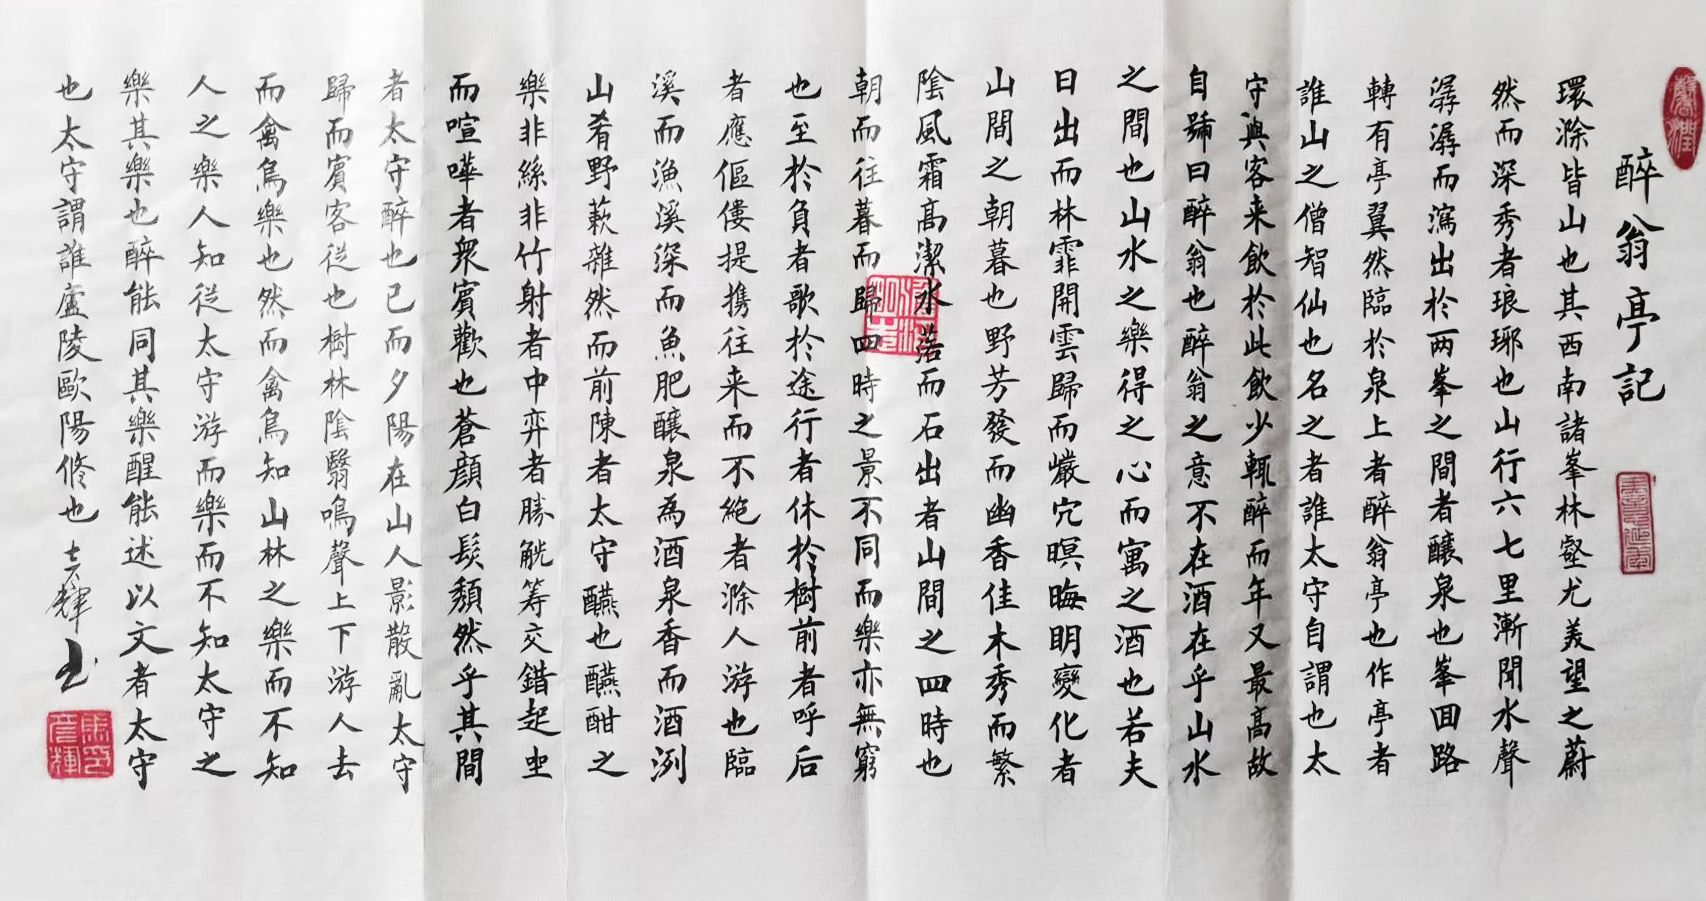 醉翁亭記
環滁皆山也其西南諸峯林壑尤美望之蔚
然而深秀者琅琊也山行六七里漸聞水聲
潺潺而瀉出於兩峯之間者釀泉也峯回路
轉有亭翼然臨於泉上者醉翁亭也作亭者
誰山之僧智仙也名之者誰太守自謂也太
守與客来飲於此飲少輒醉而年又最高故
自號曰醉翁也醉翁之意不在酒在乎山水
之間也山水之樂得之心而寓之酒也若夫
日出而林霏開雲歸而巖穴暝晦明變化者
山間之朝暮也野芳發而幽香佳木秀而繁
陰風霜高潔水落而石出者山間之四時也
朝而往暮而歸四時之景不同而樂亦無窮
也至於負者歌於途行者休於樹前者呼后
者應傴僂提携往来而不絶者滁人游也臨
溪而漁溪深而魚肥釀泉為酒泉香而酒洌
山肴野蔌雜然而前陳者太守醼也醼酣之
樂非絲非竹射者中弈者勝觥筹交錯起坐
而喧嘩者衆賓歡也蒼顔白髮頹然乎其間
者太守醉也已而夕陽在山人影散亂太守
歸而賓客從也樹林陰翳鳴聲上下游人去
而禽鳥樂也然而禽鳥知山林之樂而不知
人之樂人知從太守游而樂而不知太守之
樂其樂也醉能同其樂醒能述以文者太守
也太守謂誰廬陵歐陽修也